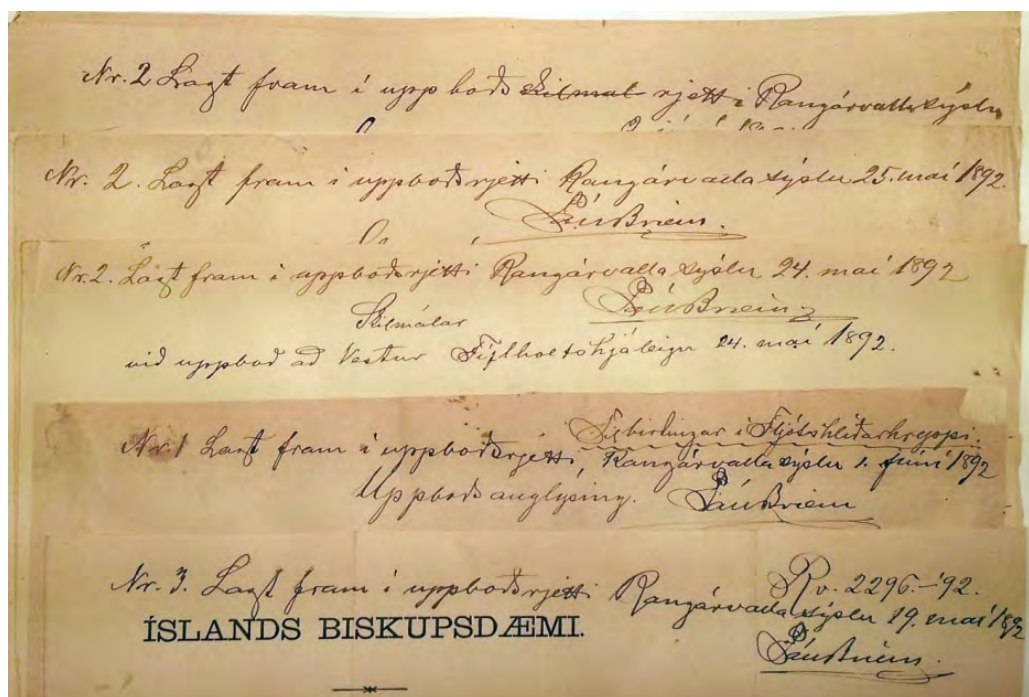 Nr. 2 Lagt fram í uppboðs skilmál rjetti Rangárvallasýslu
Nr. 2. Lagt fram í uppboðsrjetti Rangárvallasýslu 25. maí 1892.
Páll Briem.
Nr. 2. Lagt fram í uppboðsrjetti Rangárvalla sýslu 24. maí 1892
Páll Briem
Skilmálar
við uppboð að Vestur Fíflholtshjáleigu 24. maí 1892.
í Fljótshlíðarhreppi.
Nr. 1 Lagt fram í uppboðsrjetti, Rangárvallasýslu 1. júní 1892
Uppboðsauglýsing. Páll Briem
Rv. 2296.-'92.
Nr. 3. Lagt fram í uppboðsrjetti Rangárvallasýslu 19. maí 1892
ÍSLANDS BISKUPSDÆMI.
Páll Briem.